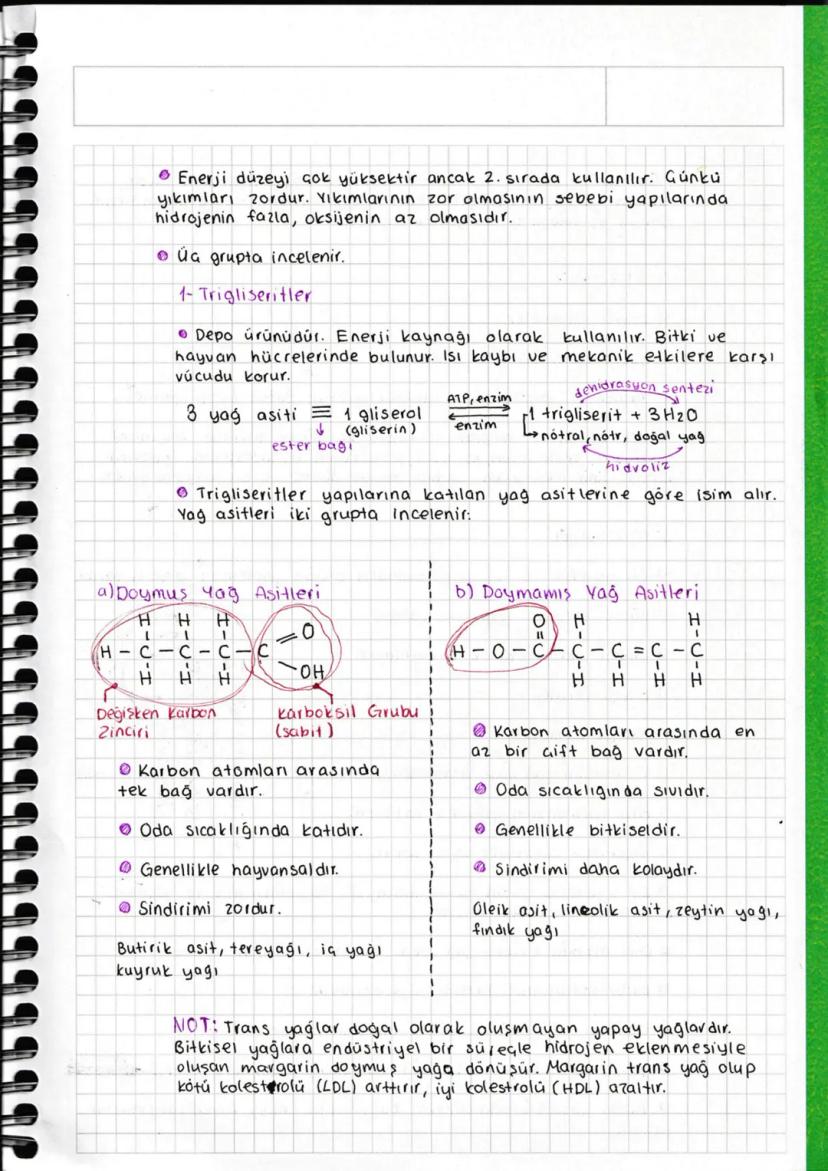 Enerji düzeyi çok yüksektir ancak 2. sırada kullanılır. Çünkü
yıkımları zordur. Yıkımlarının zor olmasının sebebi yapılarında
hidrojenin fazla, oksijenin az olmasıdır.
Üç grupta incelenir.
1- Trigliseritler
Depo ürünüdür. Enerji kaynağı olarak kullanılır. Bitki ve
hayvan hücrelerinde bulunur. Isı kaybı ve mekanik etkilere karşı
vücudu korur.
dehidrasyon sentezi
3 yağ asiti ≡ 1 gliserol ATP, enzim 1 trigliserit + 3H2O
(gliserin) enzim nötral, nötr, doğal yağ
ester bağı
hidroliz
Trigliseritler yapılarına katılan yağ asitlerine göre isim alır.
Yağ asitleri iki grupta incelenir:
a) Doymuş Yağ Asitleri
H H H
H - C - C - C - C = O
H H H - OH
Değişken Karbon
Zinciri
Karboksil Grubu
(sabit)
Karbon atomları arasında
tek bağ vardır.
Oda sıcaklığında katıdır.
Genellikle hayvansaldır.
Sindirimi zordur.
Butirik asit, tereyağı, iç yağı
kuyruk yağı
b) Doymamış Yağ Asitleri
O H H
H - O - C - C - C = C - C
H H H H
Karbon atomları arasında en
az bir çift bağ vardır.
Oda sıcaklığında sıvıdır.
Genellikle bitkiseldir.
Sindirimi daha kolaydır.
Oleik asit, lineolik asit, zeytin yağı,
fındık yağı
NOT: Trans yağlar doğal olarak oluşmayan yapay yağlardır.
Bitkisel yağlara endüstriyel bir süreçle hidrojen eklenmesiyle
oluşan margarin doymuş yağa dönüşür. Margarin trans yağ olup
kötü kolestrolü (LDL) arttırır, iyi kolestrolü (HDL) azaltır.